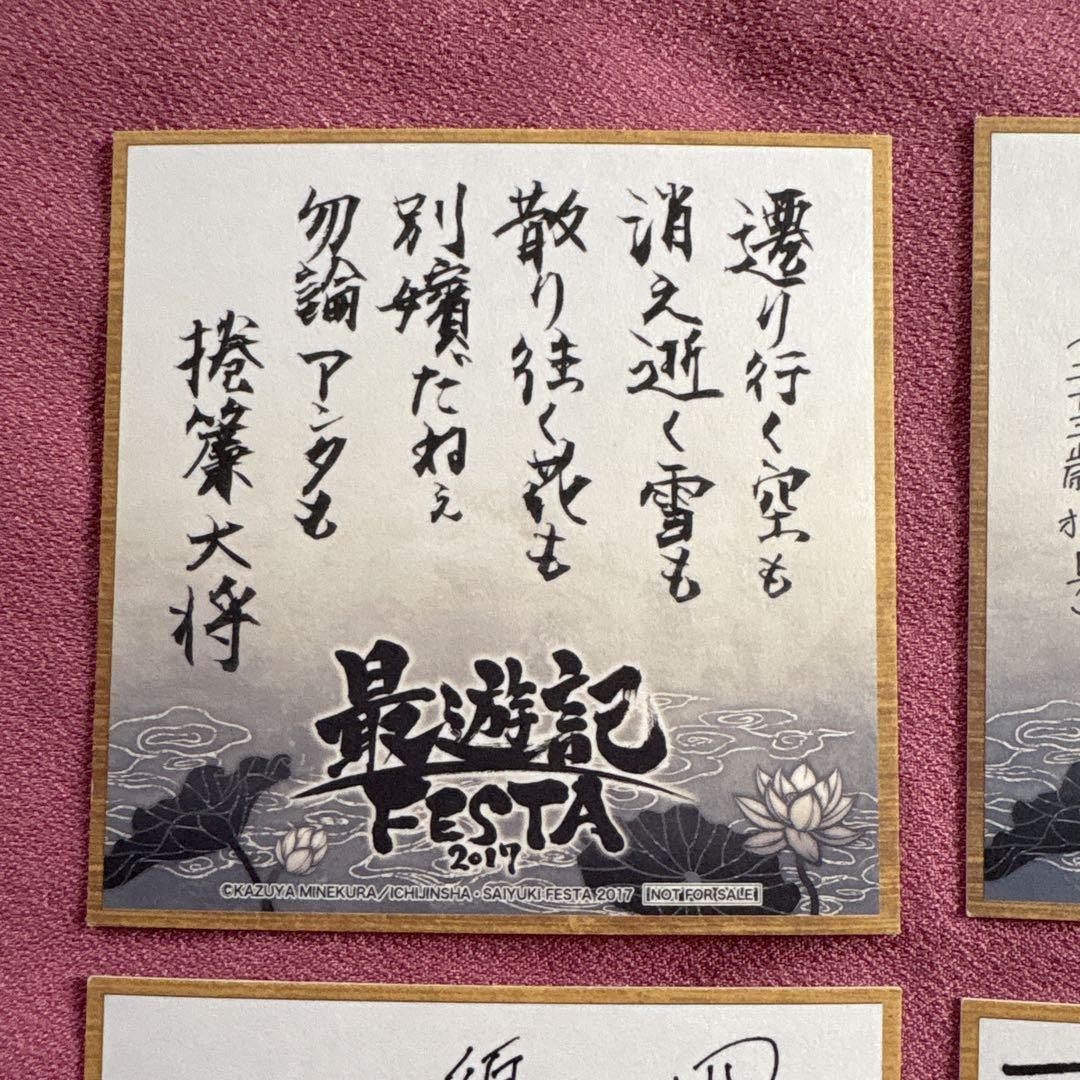 遷り行く空も
消え逝く雪も
散り往く花も
別嬪だねぇ
勿論アンタも
捲簾大将
最遊記
FESTA
2017
©KAZUYA MINEKURA/ICHIJINSHA・SAIYUKI FESTA 2017 NOT FOR SALE